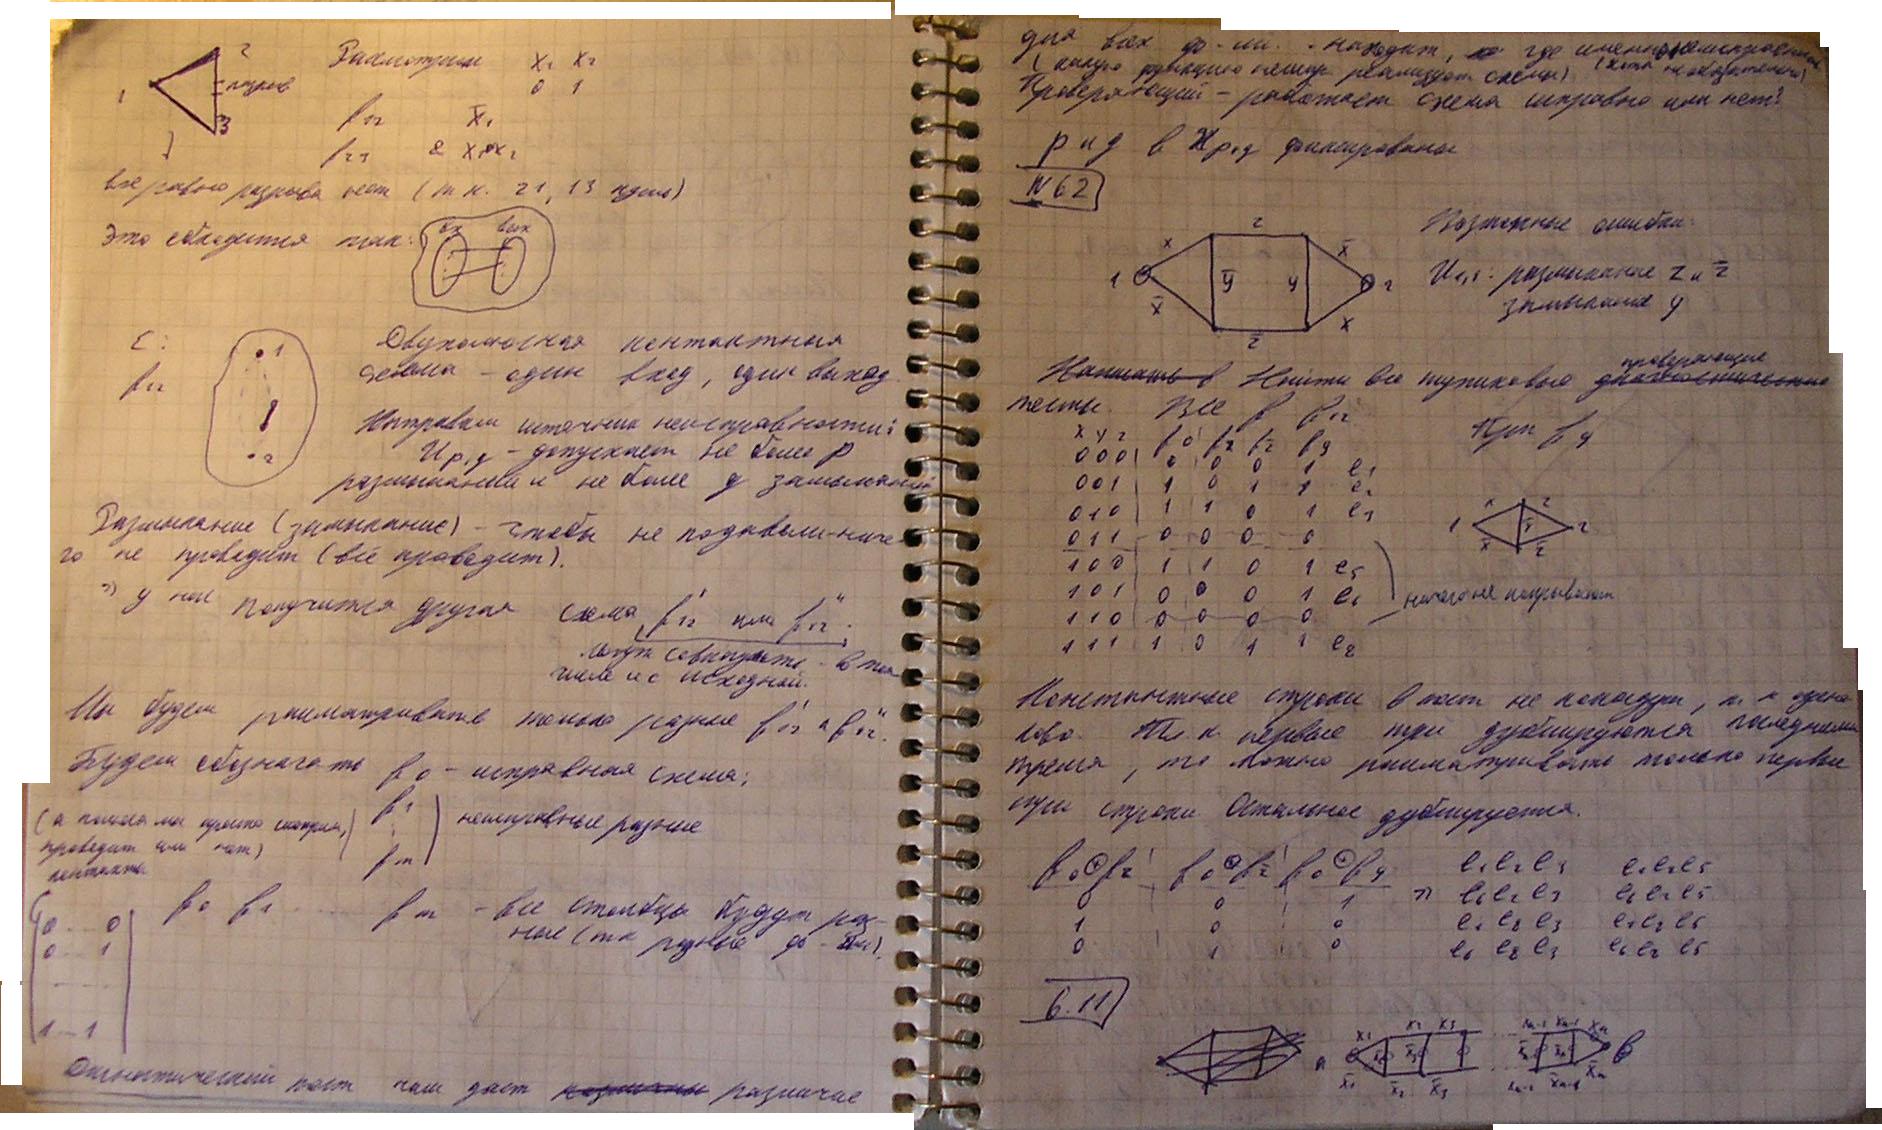 2
1
разрыв
3
Рассмотрим x₁ x₂
0 1
f₁₂ x̄₁
f₂₃
всё равно разрыва нет (т.к. 21, 13 )
Это обобщается так:
вх вых
С:
f₁₂
1
2
Двухполюсная контактная
схема – один вход, один выход.
источник неисправности:
U p,q – допускает не более p
размыканий и не более q замыканий
Размыкание (замыкание) – чтобы не подавали – ниче-
го не проводит (всё проводит).
=> у нас получится другая схема f'₁₂ или f''₁₂.
могут совпадать – в том
числе и с исходной.
Мы будем рассматривать только разные f'₁₂ и f''₁₂.
Будем обозначать f₀ – исправная схема;
(а пока мы просто смотрим,
проводит или нет)
контакты
f₁
fₘ
неисправные разные
f₀ f₁ ... fₘ – все столбцы будут раз-
ные (т.к. разные ф-ции).
0 ... 0
0 ... 1
1 ... 1
Диагностический тест нам даст различие
для всех ф-ий. – находит, где именно неисправность
(какую функцию реализует схема) (хотя необязательно)
Проверяющий – работает схема исправно или нет?
p и q в U p,q фиксированы
N 6.2
1
x
x̄
z
ȳ
y
z̄
x̄
x
2
Возможные ошибки:
U₁,₁: размыкание z и z̄
замыкание y
Найти все тупиковые проверяющие
тесты. Все f f₁₂
x y z f₀ f_z f_z̄ f_y
0 0 0 0 0 0 1 e₁
0 0 1 1 0 1 1 e₂
0 1 0 1 1 0 1 e₃
0 1 1 0 0 0 0
1 0 0 1 1 0 1 e₅
1 0 1 0 0 0 1 e₆
1 1 0 0 0 0 0
1 1 1 1 0 1 1 e₈
При f_y
1
x
z
x̄
z̄
2
ничего не покрывают
Константные строки в тест не попадут, т.к. одина-
ково. Т.к. первые три дублируются последними
тремя, то можно рассматривать только первые
три строки. Остальное дублируется.
f₀⊕f_z f₀⊕f_z̄ f₀⊕f_y
0 0 1
1 0 0
0 1 0
=>
e₁e₂e₃ e₁e₂e₅
e₆e₂e₃ e₆e₂e₅
e₁e₈e₃ e₁e₈e₅
e₆e₈e₃ e₆e₈e₅
6.11
a
x₁
x̄₁
x₂
x₃
x̄₂
x̄₃
xₙ
x̄ₙ
b